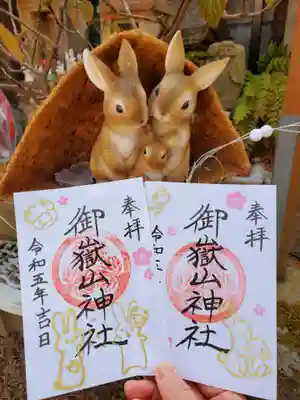 奉拝
御嶽山神社
令和五年吉日
奉拝
御嶽山神社
令和